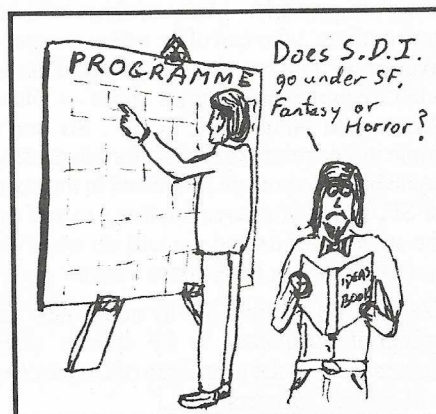 PROGRAMME
Does S.D.I.
go under SF,
Fantasy or
Horror?
IDEAS
BOOK